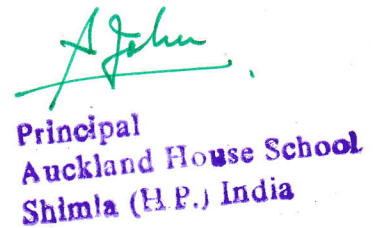 A John
Principal
Auckland House School
Shimla (H.P.) India